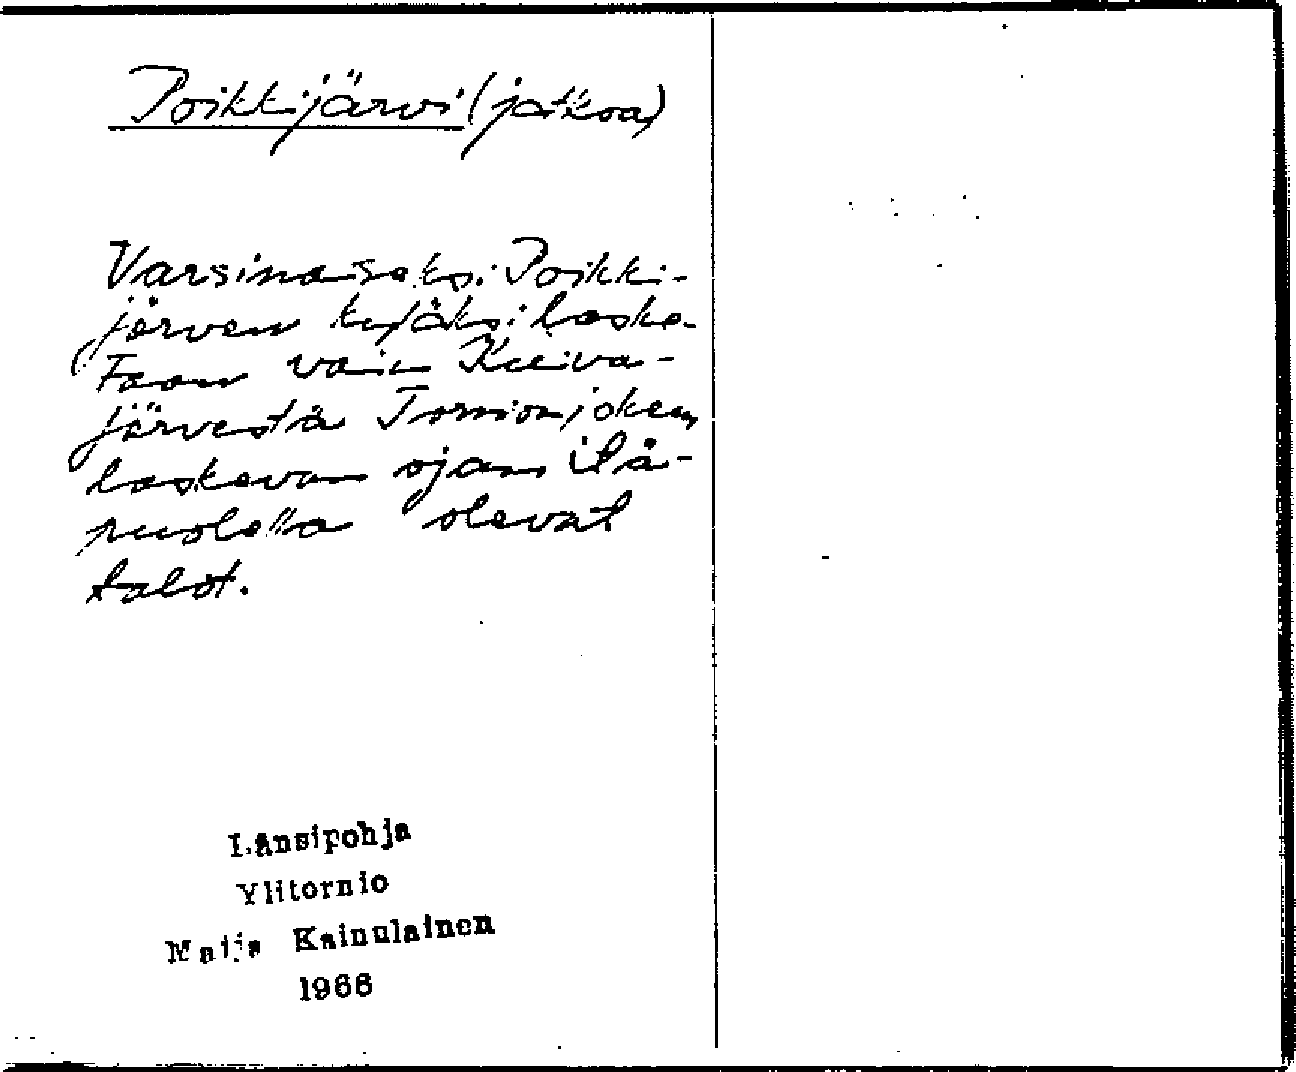 Poikkijärvi (jatkoa)
Varsinaiseksi Poikki-
järven kyläksi laske-
taan vain Kuiva-
järvestä Tornionjokeen
laskevan ojan itä-
puolella olevat
talot.
Länsipohja
Ylitornio
Maija Kainulainen
1966